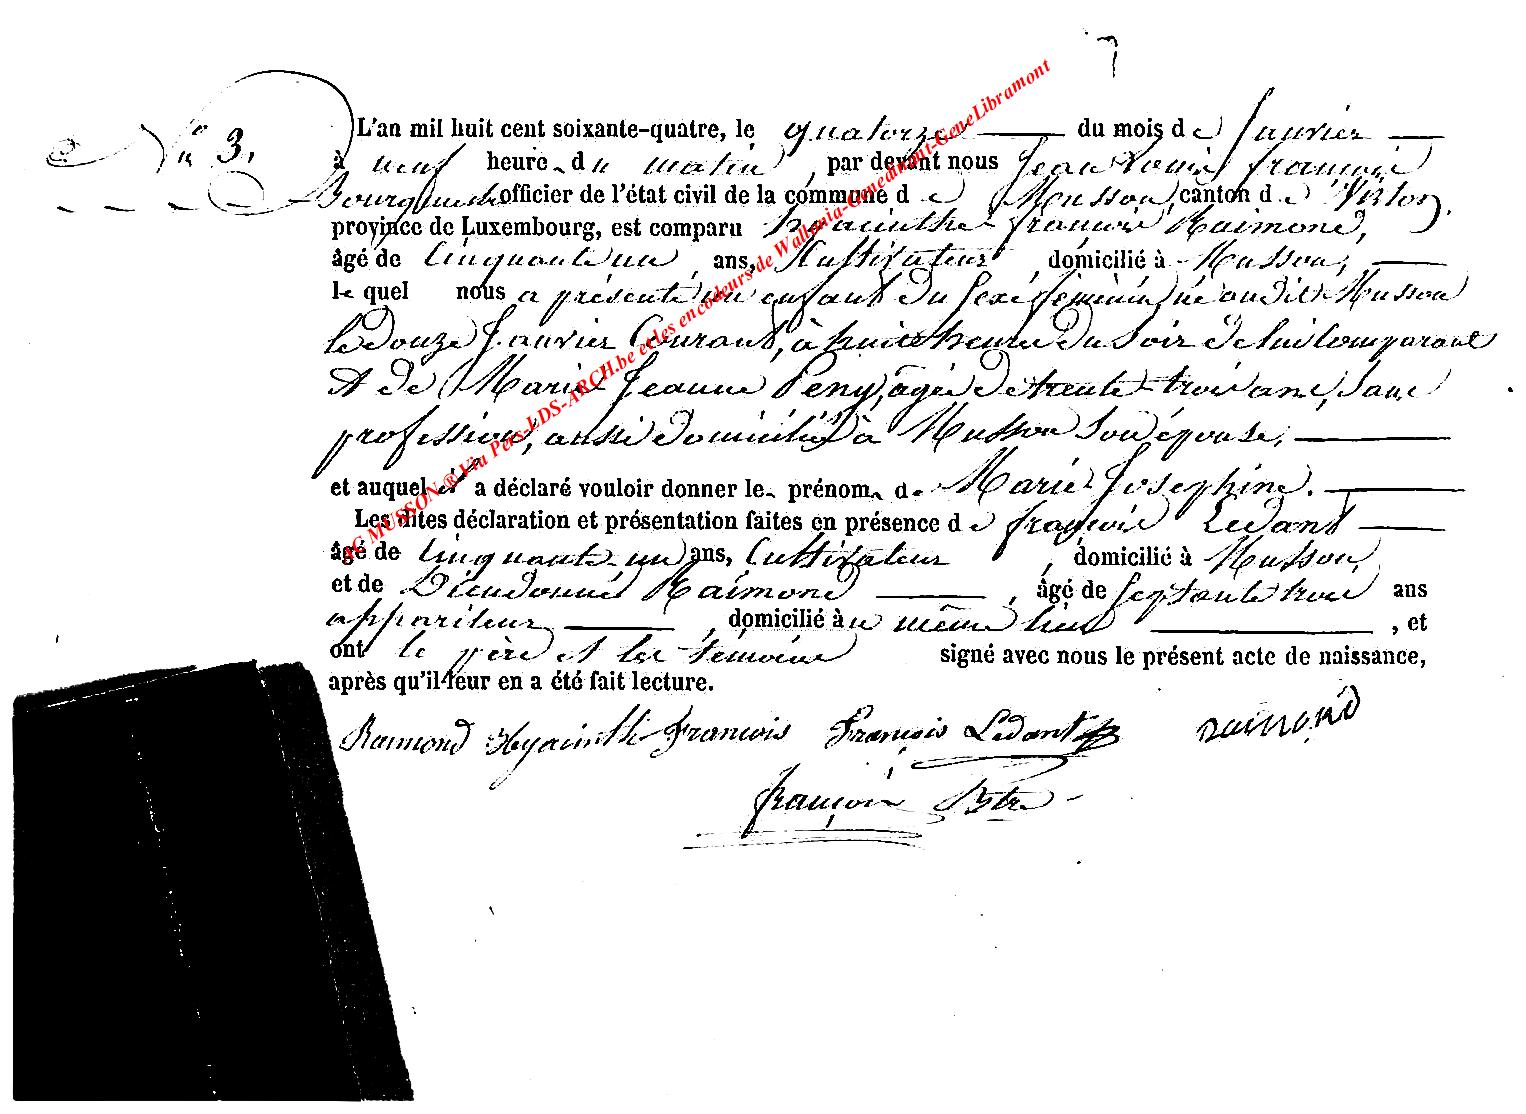 N° 3.
L'an mil huit cent soixante-quatre, le quatorze du mois de Janvier
à neuf heure du matin, par devant nous Jean Louis françois
officier de l'état civil de la commune de Musson, canton de Virton,
province de Luxembourg, est comparu hyacinthe françois Raimond,
âgé de Cinquante un, ans, Cultivateur, domicilié à Musson,
le quel nous a présenté un enfant du sexe féminin né audit Musson
le douze Janvier Courant, à huit heure du soir de lui Comparant
et de Marie Jeanne Peny, agée de trente-trois ans, sans
profession, aussi domiciliée à Musson Son épouse,
et auquel il a déclaré vouloir donner le prénom de Marie Josephine.
Les dites déclaration et présentation faites en présence de françois Ledant
âgé de Cinquante-un ans, Cultivateur, domicilié à Musson,
et de Dieudonné Raimond, âgé de septante trois ans
appariteur, domicilié au même lieu, et
ont le père et les témoins signé avec nous le présent acte de naissance,
après qu'il leur en a été fait lecture.
Raimond Hyacinthe François François Ledant raimond
françois
AC MUSSON ® Via Pers-LDS-ARCH.be et les encodeurs de Wallonia-Genedinant-GeneLibramont